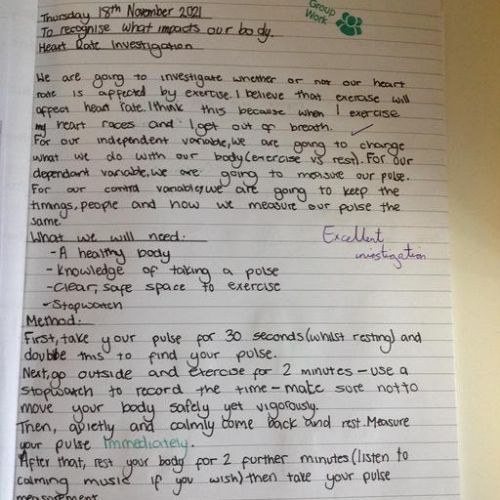 Thursday 18th November 2021
Group Work
To recognise what impacts our body.
Heart Rate Investigation
We are going to investigate whether or not our heart
rate is affected by exercise. I believe that exercise will
affect heart rate. I think this because when I exercise
my heart races and I get out of breath.
For our independent variable, we are going to change
what we do with our body (exercise vs rest). For our
dependant variable, we are going to measure our pulse.
For our control variables, we are going to keep the
timings, people and how we measure our pulse the
same.
What we will need:
Excellent
investigation
- A healthy body
- Knowledge of taking a pulse
- Clear, safe space to exercise
- Stopwatch
Method:
First, take your pulse for 30 seconds (whilst resting) and
double this to find your pulse.
Next, go outside and exercise for 2 minutes - use a
stopwatch to record the time - make sure not to
move your body safely yet vigorously.
Then, quietly and calmly come back and rest. Measure
your pulse immediately.
After that, rest your body for 2 further minutes (listen to
calming music if you wish) then take your pulse
measurement